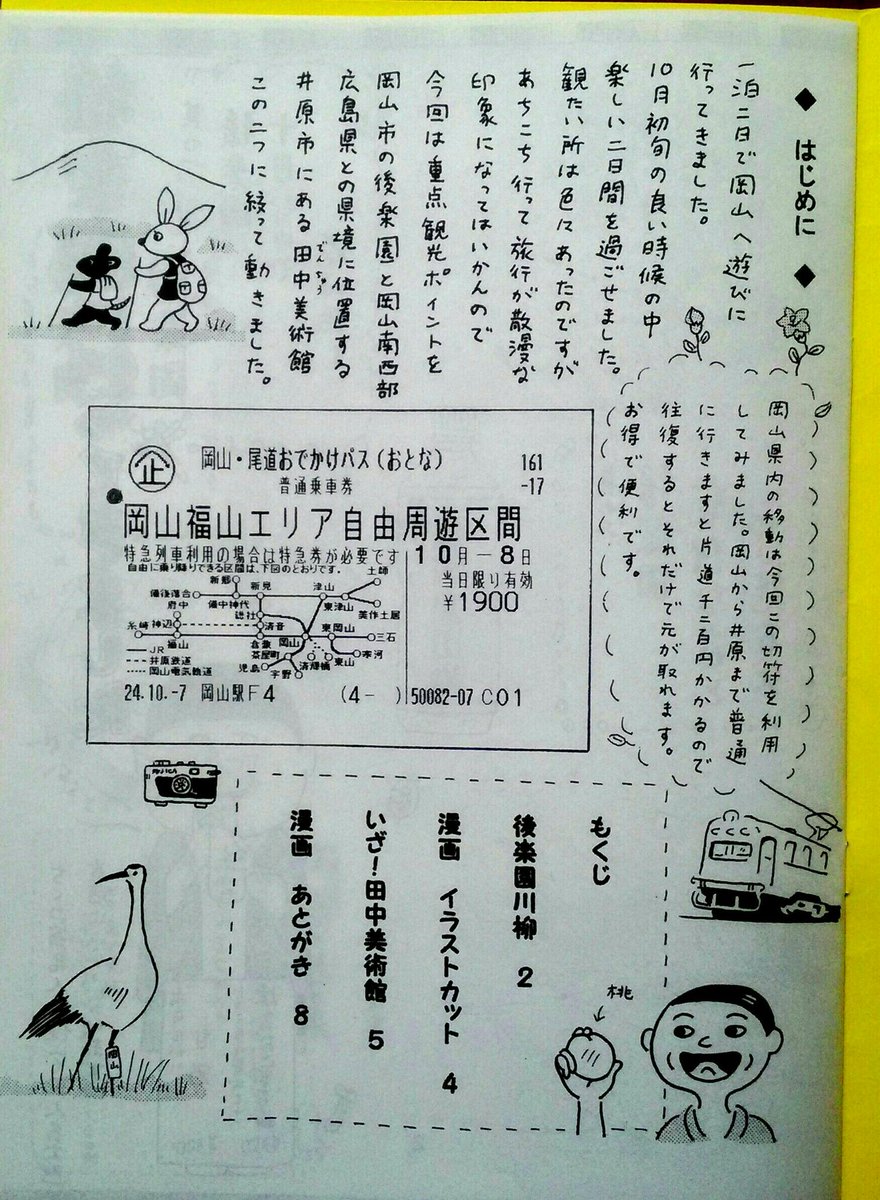 ◆ はじめに ◆
一泊二日で岡山へ遊びに
行ってきました。
10月初旬の良い時候の中
楽しい二日間を過ごせました。
観たい所は色々あったのですが
あちこち行って旅行が散漫な
印象になってはいかんので
今回は重点観光ポイントを
岡山市の後楽園と岡山南西部
広島県との県境に位置する
井原市にある田中美術館
でんちゅう
この二つに絞って動きました。
岡山県内の移動は今回この切符を利用
してみました。岡山から井原まで普通
に行きますと片道千二百円かかるので
往復するとそれだけで元が取れます。
お得で便利です。
企
岡山・尾道おでかけパス(おとな)
161
普通乗車券
-17
岡山福山エリア自由周遊区間
特急列車利用の場合は特急券が必要です
10月-8日
自由に乗り降りできる区間は、下図のとおりです。
当日限り有効
¥1900
新郷
新見
津山
土師
備後落合
備中神代
東津山
美作土居
府中
総社
糸崎
神辺
清音
東岡山
三石
福山
倉敷
岡山
茶屋町
寒河
児島
宇野
東山
JR
井原鉄道
岡山電気軌道
24.10.-7 岡山駅F4 (4- )
50082-07 C01
もくじ
後楽園川柳 2
漫画 イラストカット 4
いざ!田中美術館 5
漫画 あとがき 8
FUJICA
岡山
桃